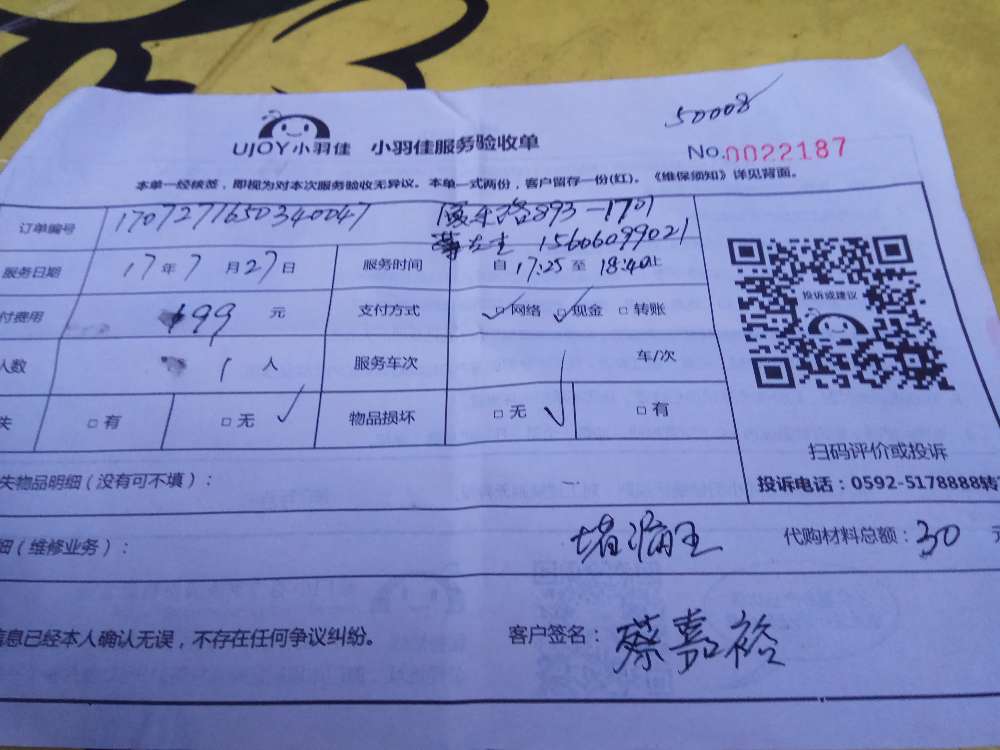 50008
UJOY小羽佳 小羽佳服务验收单
No.0022187
本单一经核签，即视为对本次服务验收无异议。本单一式两份，客户留存一份(红)。《维保须知》详见背面。
订单编号 1707271650340047 893-1701
先生 15606099021
服务日期 17年7月27日 服务时间 自17:25至18:40止
付费用 199元 支付方式 □网络 □现金 □转账
人数 1人 服务车次 1 车/次
失 □有 □无 物品损坏 □无 □有
投诉或建议
扫码评价或投诉
投诉电话：0592-5178888转
失物品明细（没有可不填）：
细（维修业务）： 堵漏王 代购材料总额：30
信息已经本人确认无误，不存在任何争议纠纷。 客户签名：蔡嘉裕